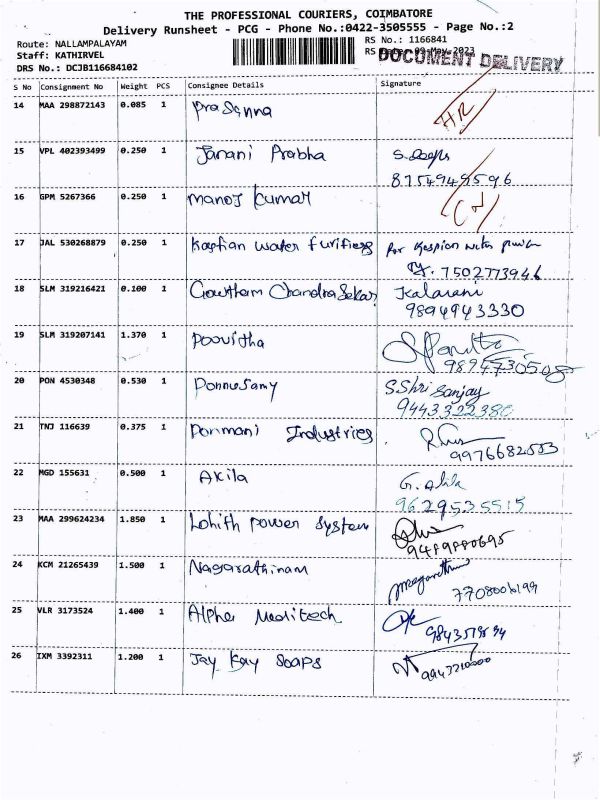 THE PROFESSIONAL COURIERS, COIMBATORE
Delivery Runsheet - PCG - Phone No.:0422-3505555 - Page No.:2
Route: NALLAMPALAYAM
RS No.: 1166841
Staff: KATHIRVEL
RS Date: 09-May-2023
DOCUMENT DELIVERY
DRS No.: DCJB116684102
S No Consignment No Weight PCS Consignee Details Signature
14 MAA 298872143 0.085 1 Prasanna
15 VPL 402393499 0.250 1 Janani Prabha
16 GPM 5267366 0.250 1 Manoj Kumar
17 JAL 530268879 0.250 1 Kaspian water Purifiers For Kaspion
7502773946
18 SLM 319216421 0.100 1 Gowtham Chandra Sekar Kalarani
9894943330
19 SLM 319207141 1.370 1 Poovitha
20 PON 4530348 0.530 1 Ponnusamy S.Shri Sanjay
9443322380
21 TNJ 116639 0.375 1 Ponmani Industries
9976682553
22 MGD 155631 0.500 1 Akila G. Akila
9629535515
23 MAA 299624234 1.850 1 Lohith power System
24 KCM 21265439 1.500 1 Nagarathinam
7708006199
25 VLR 3173524 1.400 1 Alpha Meditech
26 IXM 3392311 1.200 1 Jay Kay Soaps